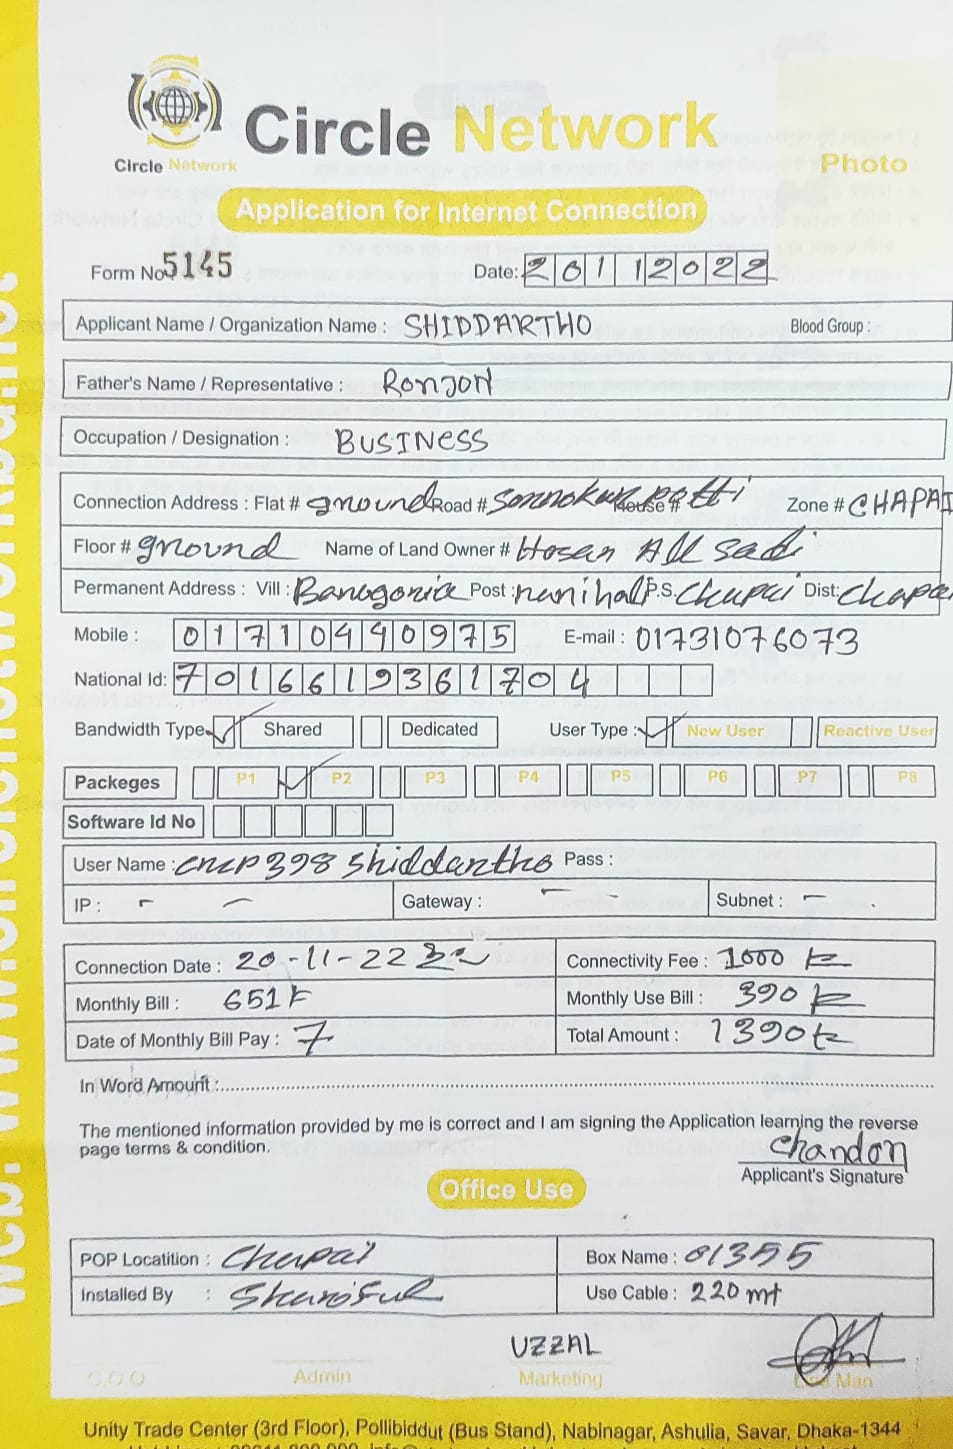 Circle Network
Circle Network
Photo
Application for Internet Connection
Form No 5145 Date: 20112022
Applicant Name / Organization Name : SHIDDARTHO Blood Group :
Father's Name / Representative : RONJON
Occupation / Designation : BUSINESS
Connection Address : Flat # ground Road # House # Zone # CHAPAI
Floor # ground Name of Land Owner # Hosan All Sadi
Permanent Address : Vill : Post : P.S. Chapai Dist: Chapai
Mobile : 01710440975 E-mail : 01731076073
National Id: 7016619361704
Bandwidth Type Shared Dedicated User Type : New User Reactive User
Packeges P1 P2 P3 P4 P5 P6 P7 P8
Software Id No
User Name : cncp398 shiddartho Pass :
IP : - - Gateway : - - Subnet : -
Connection Date : 20-11-22 Connectivity Fee : 1000 tk
Monthly Bill : 651 tk Monthly Use Bill : 390 tk
Date of Monthly Bill Pay : 7 Total Amount : 1390 tk
In Word Amount :
The mentioned information provided by me is correct and I am signing the Application learning the reverse
page terms & condition.
Chandon
Applicant's Signature
Office Use
POP Locatition : Chapai Box Name : 01355
Installed By : Shariful Use Cable : 220 mt
UZZAL
C.O.O Admin Marketing Man
Unity Trade Center (3rd Floor), Pollibiddut (Bus Stand), Nabinagar, Ashulia, Savar, Dhaka-1344